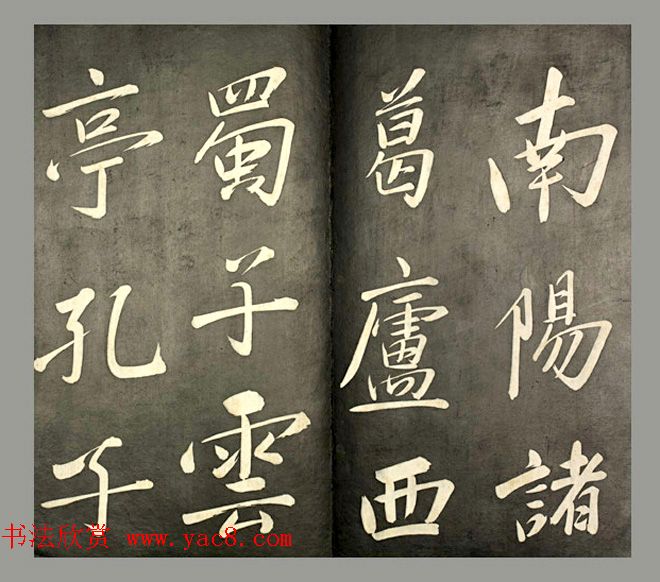 南陽諸
葛廬西
蜀子雲
亭孔子
书法欣赏 www.yac8.com